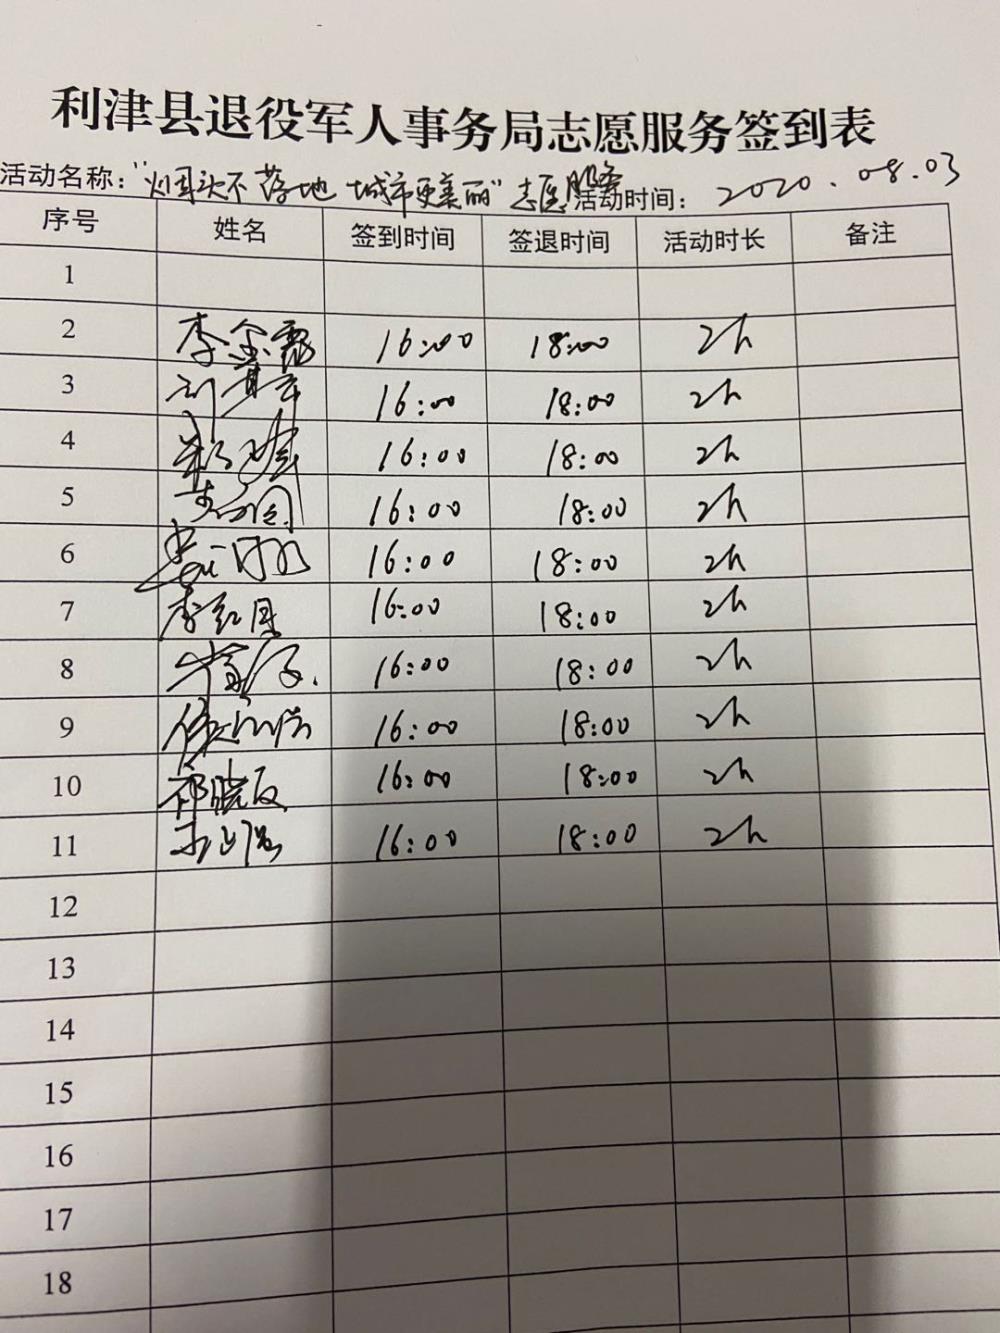 利津县退役军人事务局志愿服务签到表
活动名称："烟头不落地 城市更美丽"志愿服务 活动时间：2020.08.03
序号 姓名 签到时间 签退时间 活动时长 备注
1
2 李 16:00 18:00 2h
3 刘 16:00 18:00 2h
4 16:00 18:00 2h
5 16:00 18:00 2h
6 16:00 18:00 2h
7 李红 16:00 18:00 2h
8 16:00 18:00 2h
9 16:00 18:00 2h
10 祁晓 16:00 18:00 2h
11 16:00 18:00 2h
12
13
14
15
16
17
18